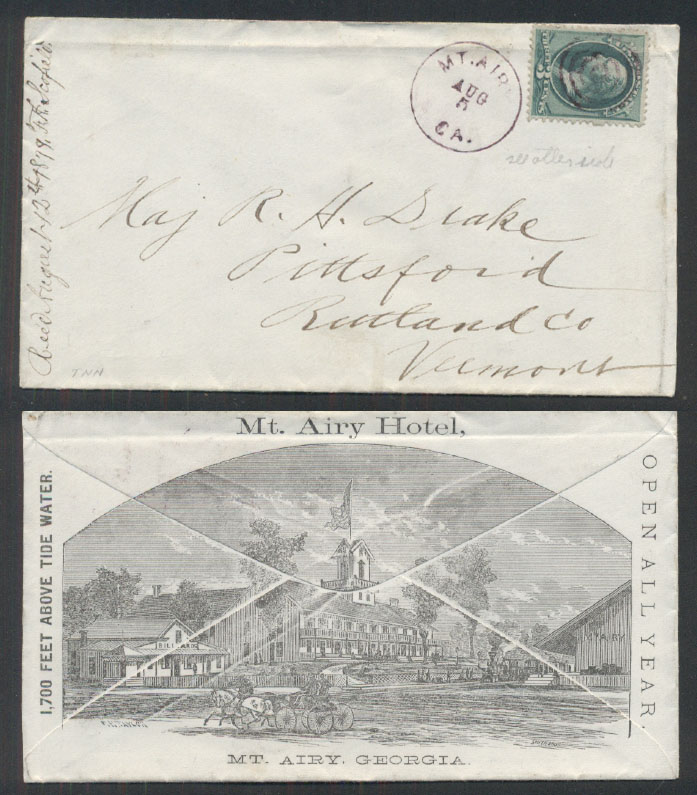 MT. AIRY
AUG
5
GA.
see other side
Maj R. H. Drake
Pittsford
Rutland Co
Vermont
Recd August 12th 1878
TNN
Mt. Airy Hotel,
1,700 FEET ABOVE TIDE WATER.
OPEN ALL YEAR
BILLIARDS
MT. AIRY, GEORGIA.